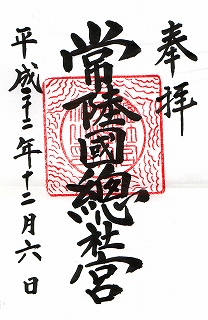 奉拝
常陸國總社宮
平成二十二年十二月六日